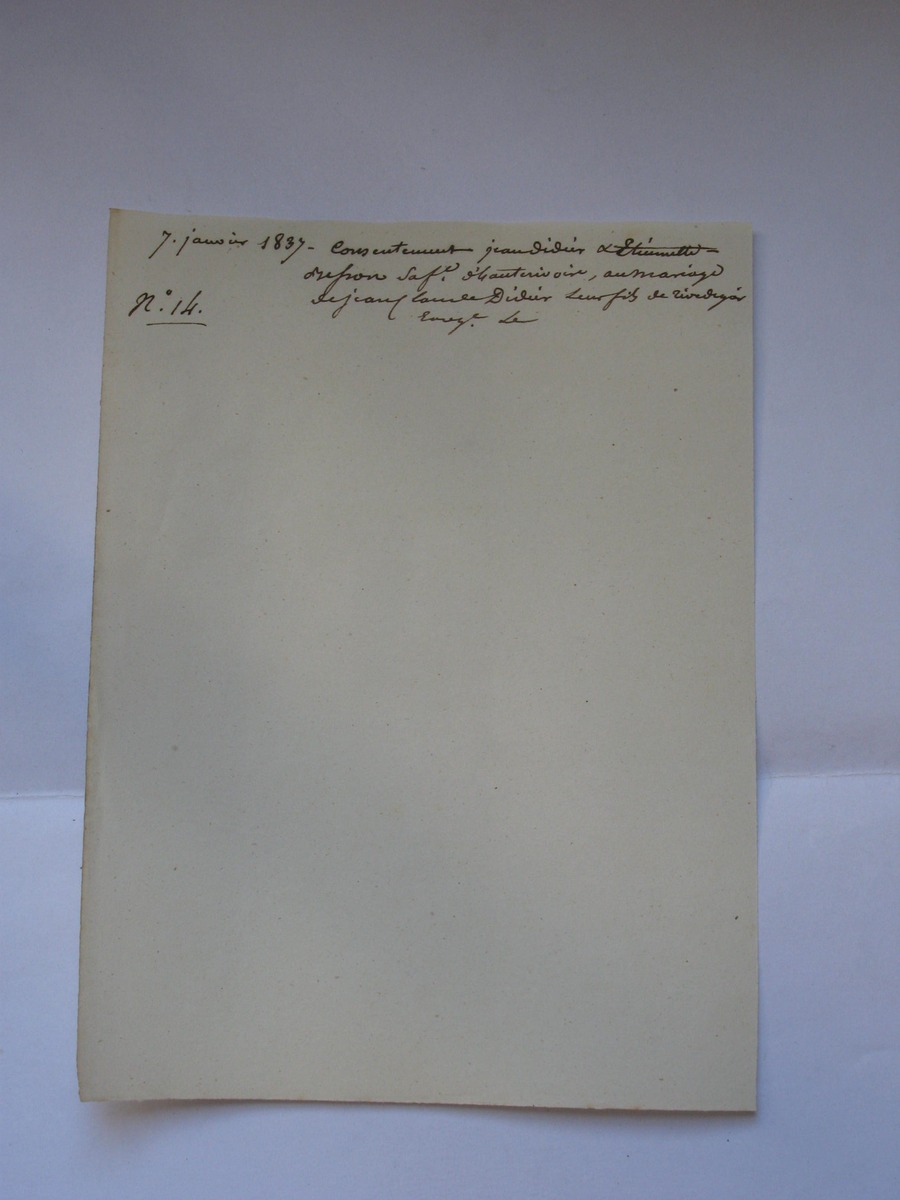 7. janvier 1837 - Consentement jean didier & Etiennette
sa fe. d'hauterivoire, au mariage
N°. 14.
de jean Claude Didier leur fils de rivedegier
Enregt. Le